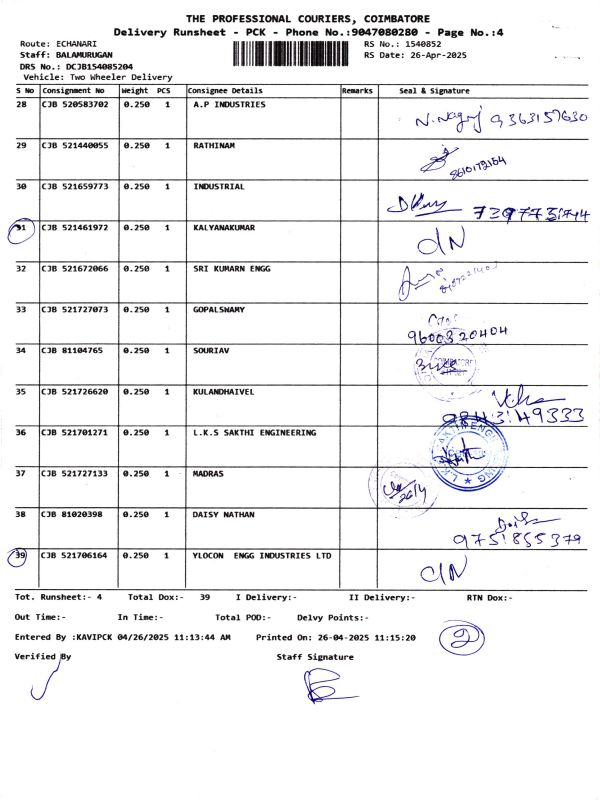 THE PROFESSIONAL COURIERS, COIMBATORE
Delivery Runsheet - PCK - Phone No.:9047080280 - Page No.:4
Route: ECHANARI RS No.: 1540852
Staff: BALAMURUGAN RS Date: 26-Apr-2025
DRS No.: DCJB154085204
Vehicle: Two Wheeler Delivery
S No Consignment No Weight PCS Consignee Details Remarks Seal & Signature
28 CJB 520583702 0.250 1 A.P INDUSTRIES
N.Nagraj 9363157630
29 CJB 521440055 0.250 1 RATHINAM
8610172164
30 CJB 521659773 0.250 1 INDUSTRIAL
31 CJB 521461972 0.250 1 KALYANAKUMAR
C/N
32 CJB 521672066 0.250 1 SRI KUMARN ENGG
33 CJB 521727073 0.250 1 GOPALSWAMY
9600320404
34 CJB 81104765 0.250 1 SOURIAV
COIMBATORE
35 CJB 521726620 0.250 1 KULANDHAIVEL
9843149333
36 CJB 521701271 0.250 1 L.K.S SAKTHI ENGINEERING
37 CJB 521727133 0.250 1 MADRAS
26/4
38 CJB 81020398 0.250 1 DAISY NATHAN
9751855379
39 CJB 521706164 0.250 1 YLOCON ENGG INDUSTRIES LTD
C/N
Tot. Runsheet:- 4 Total Dox:- 39 I Delivery:- II Delivery:- RTN Dox:-
Out Time:- In Time:- Total POD:- Delvy Points:-
Entered By :KAVIPCK 04/26/2025 11:13:44 AM Printed On: 26-04-2025 11:15:20
2
Verified By Staff Signature